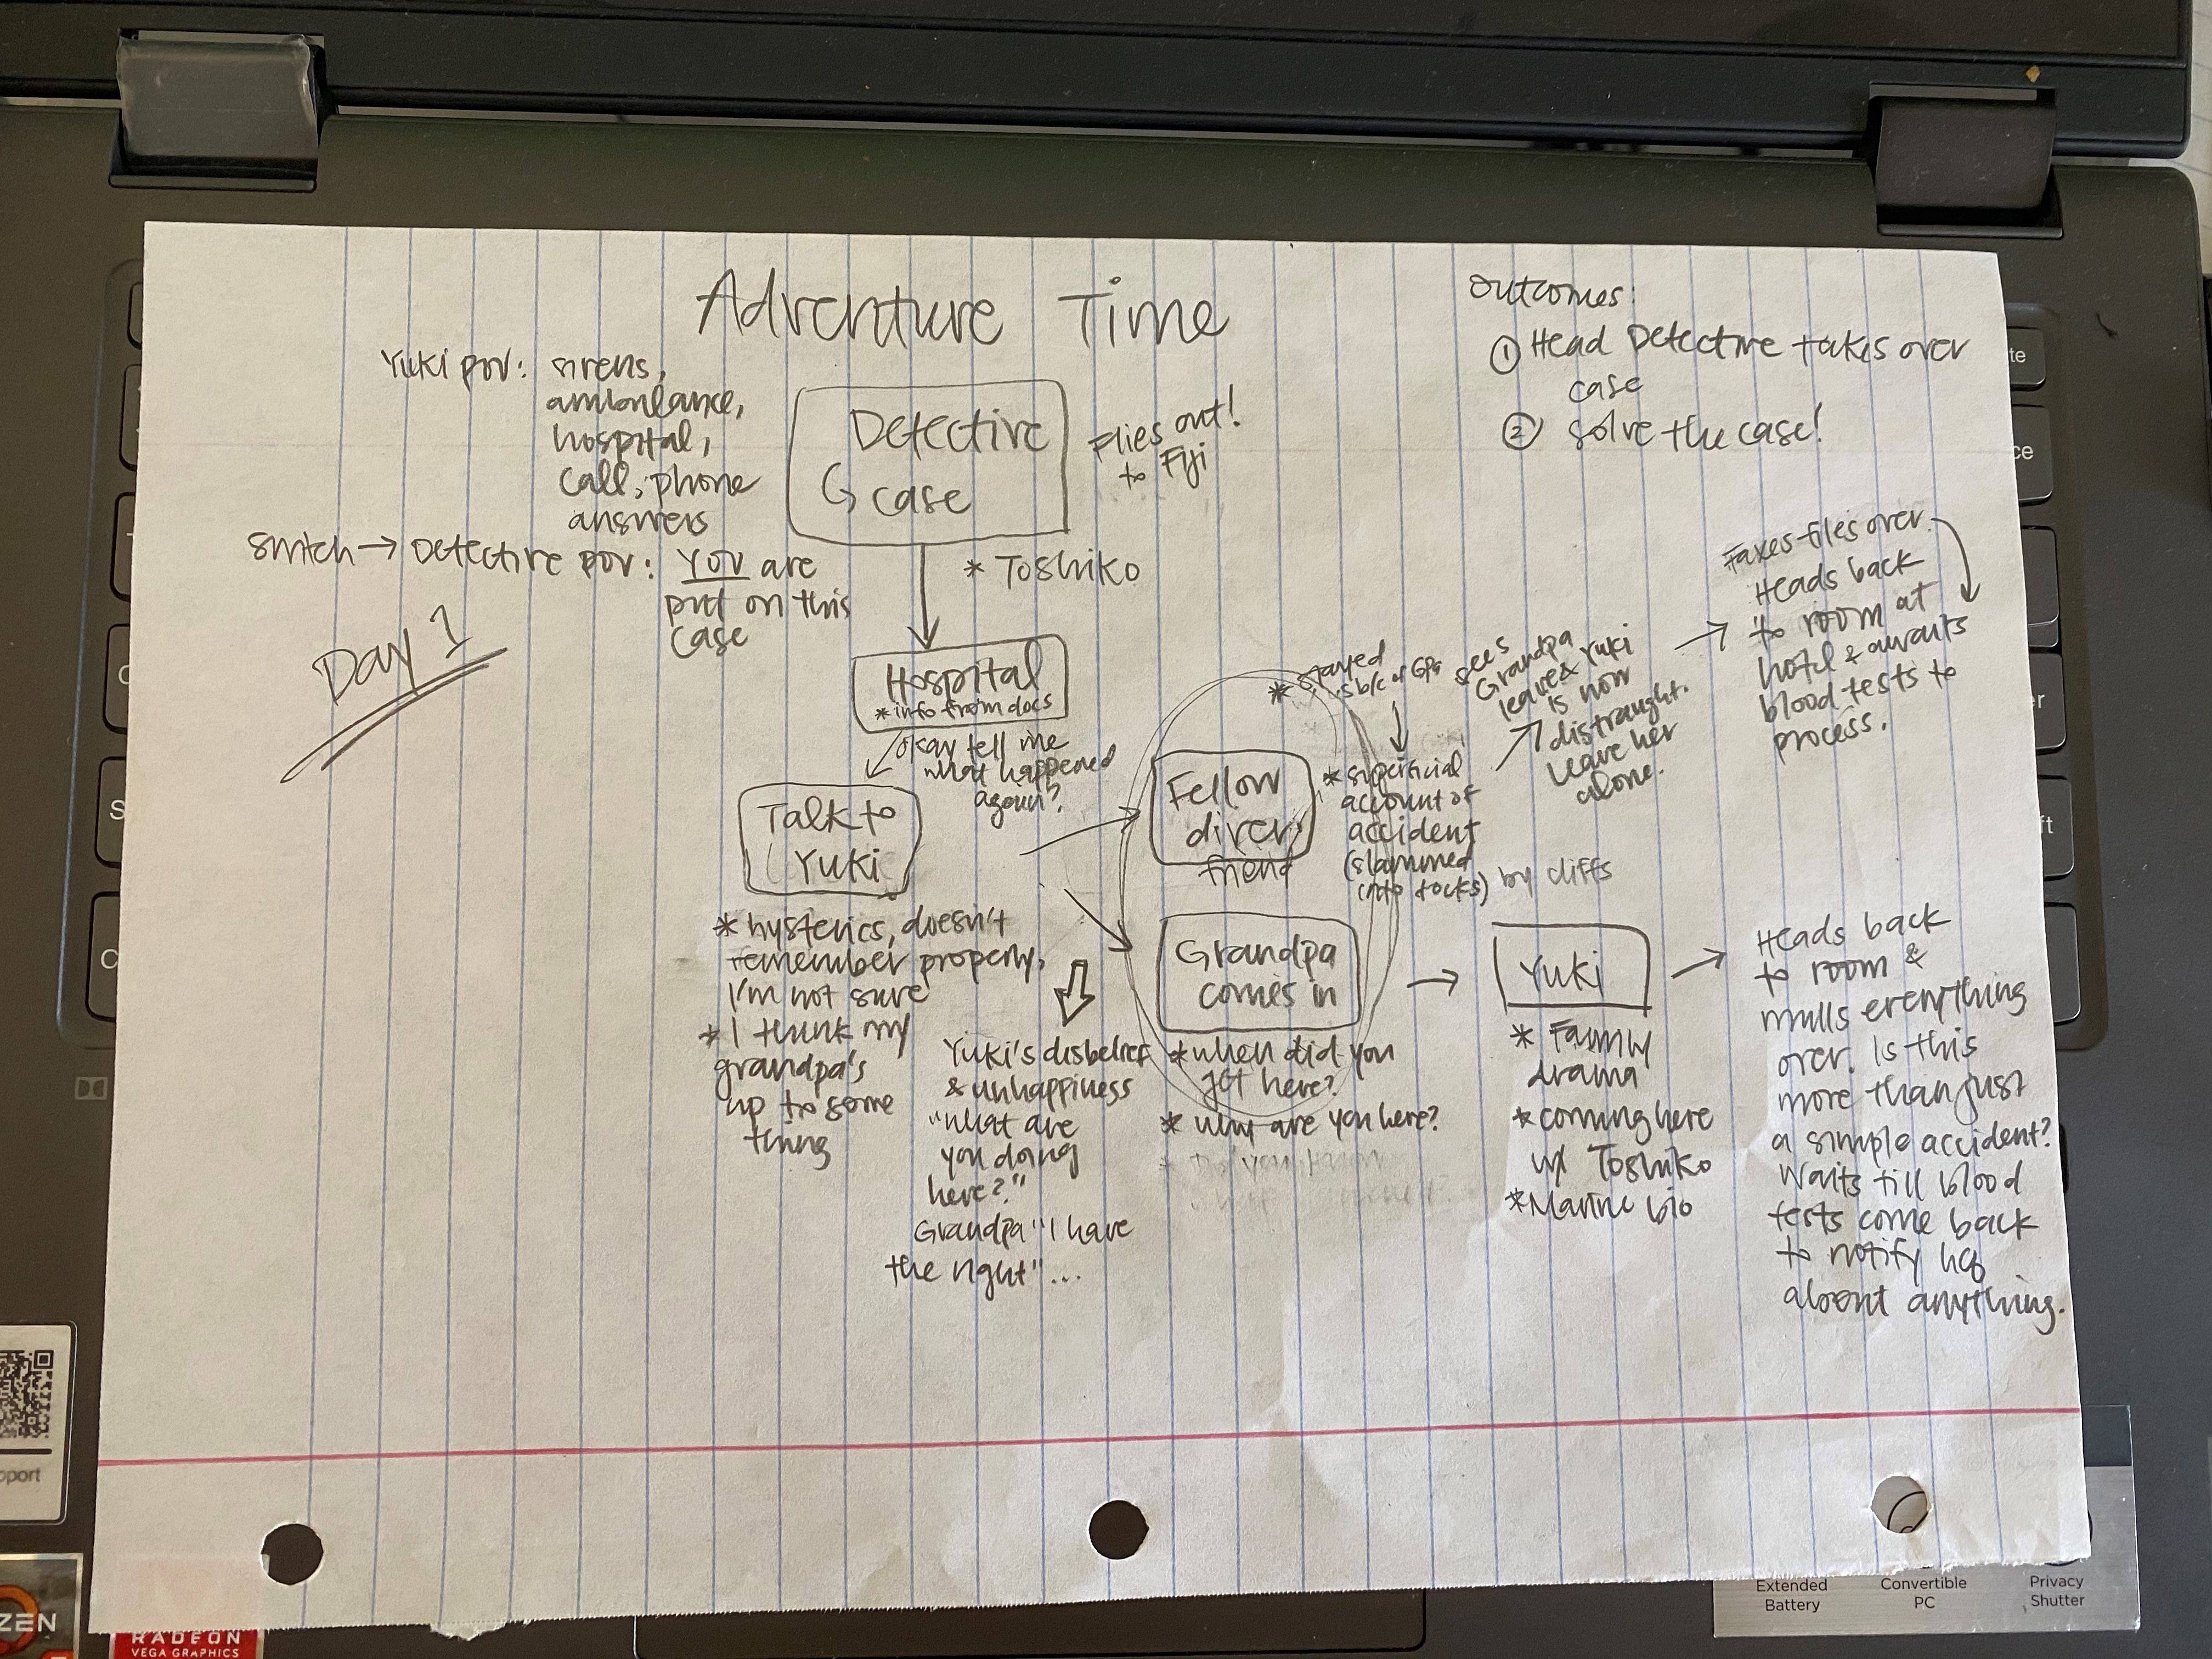 Adventure Time
Outcomes:
① Head Detective takes over
case
② solve the case!
Yuki pov: sirens,
ambulance,
hospital,
call, phone
answers
switch → Detective pov: YOU are
put on this
case
Day 1
Detective
case
Flies out!
to Fiji
* Toshiko
Hospital
*info from docs
okay tell me
what happened
again?
Talk to
Yuki
* hysterics, doesn't
remember properly,
I'm not sure
* I think my
grandpa's
up to some
thing
Yuki's disbelief
& unhappiness
"what are
you doing
here?"
Grandpa "I have
the right"...
Fellow
diver
friend
* stayed
b/c of Gpa
* superficial
account of
accident
(slammed
into rocks) by cliffs
sees
Grandpa
leave & Yuki
is now
distraught.
Leave her
alone.
Faxes files over.
Heads back
to room at
hotel & awaits
blood tests to
process.
Grandpa
comes in
* when did you
get here?
* why are you here?
Yuki
* Family
drama
* coming here
w/ Toshiko
* Marine bio
Heads back
to room &
mulls everything
over. Is this
more than just
a simple accident?
Waits till blood
tests come back
to notify hq
about anything.
Extended
Battery
Convertible
PC
Privacy
Shutter
ZEN
RADEON
VEGA GRAPHICS
pport